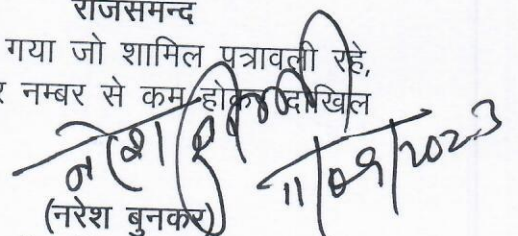 राजसमन्द
गया जो शामिल पत्रावली रहे,
नम्बर से कम होकर दाखिल
11/09/2023
(नरेश बुनकर)